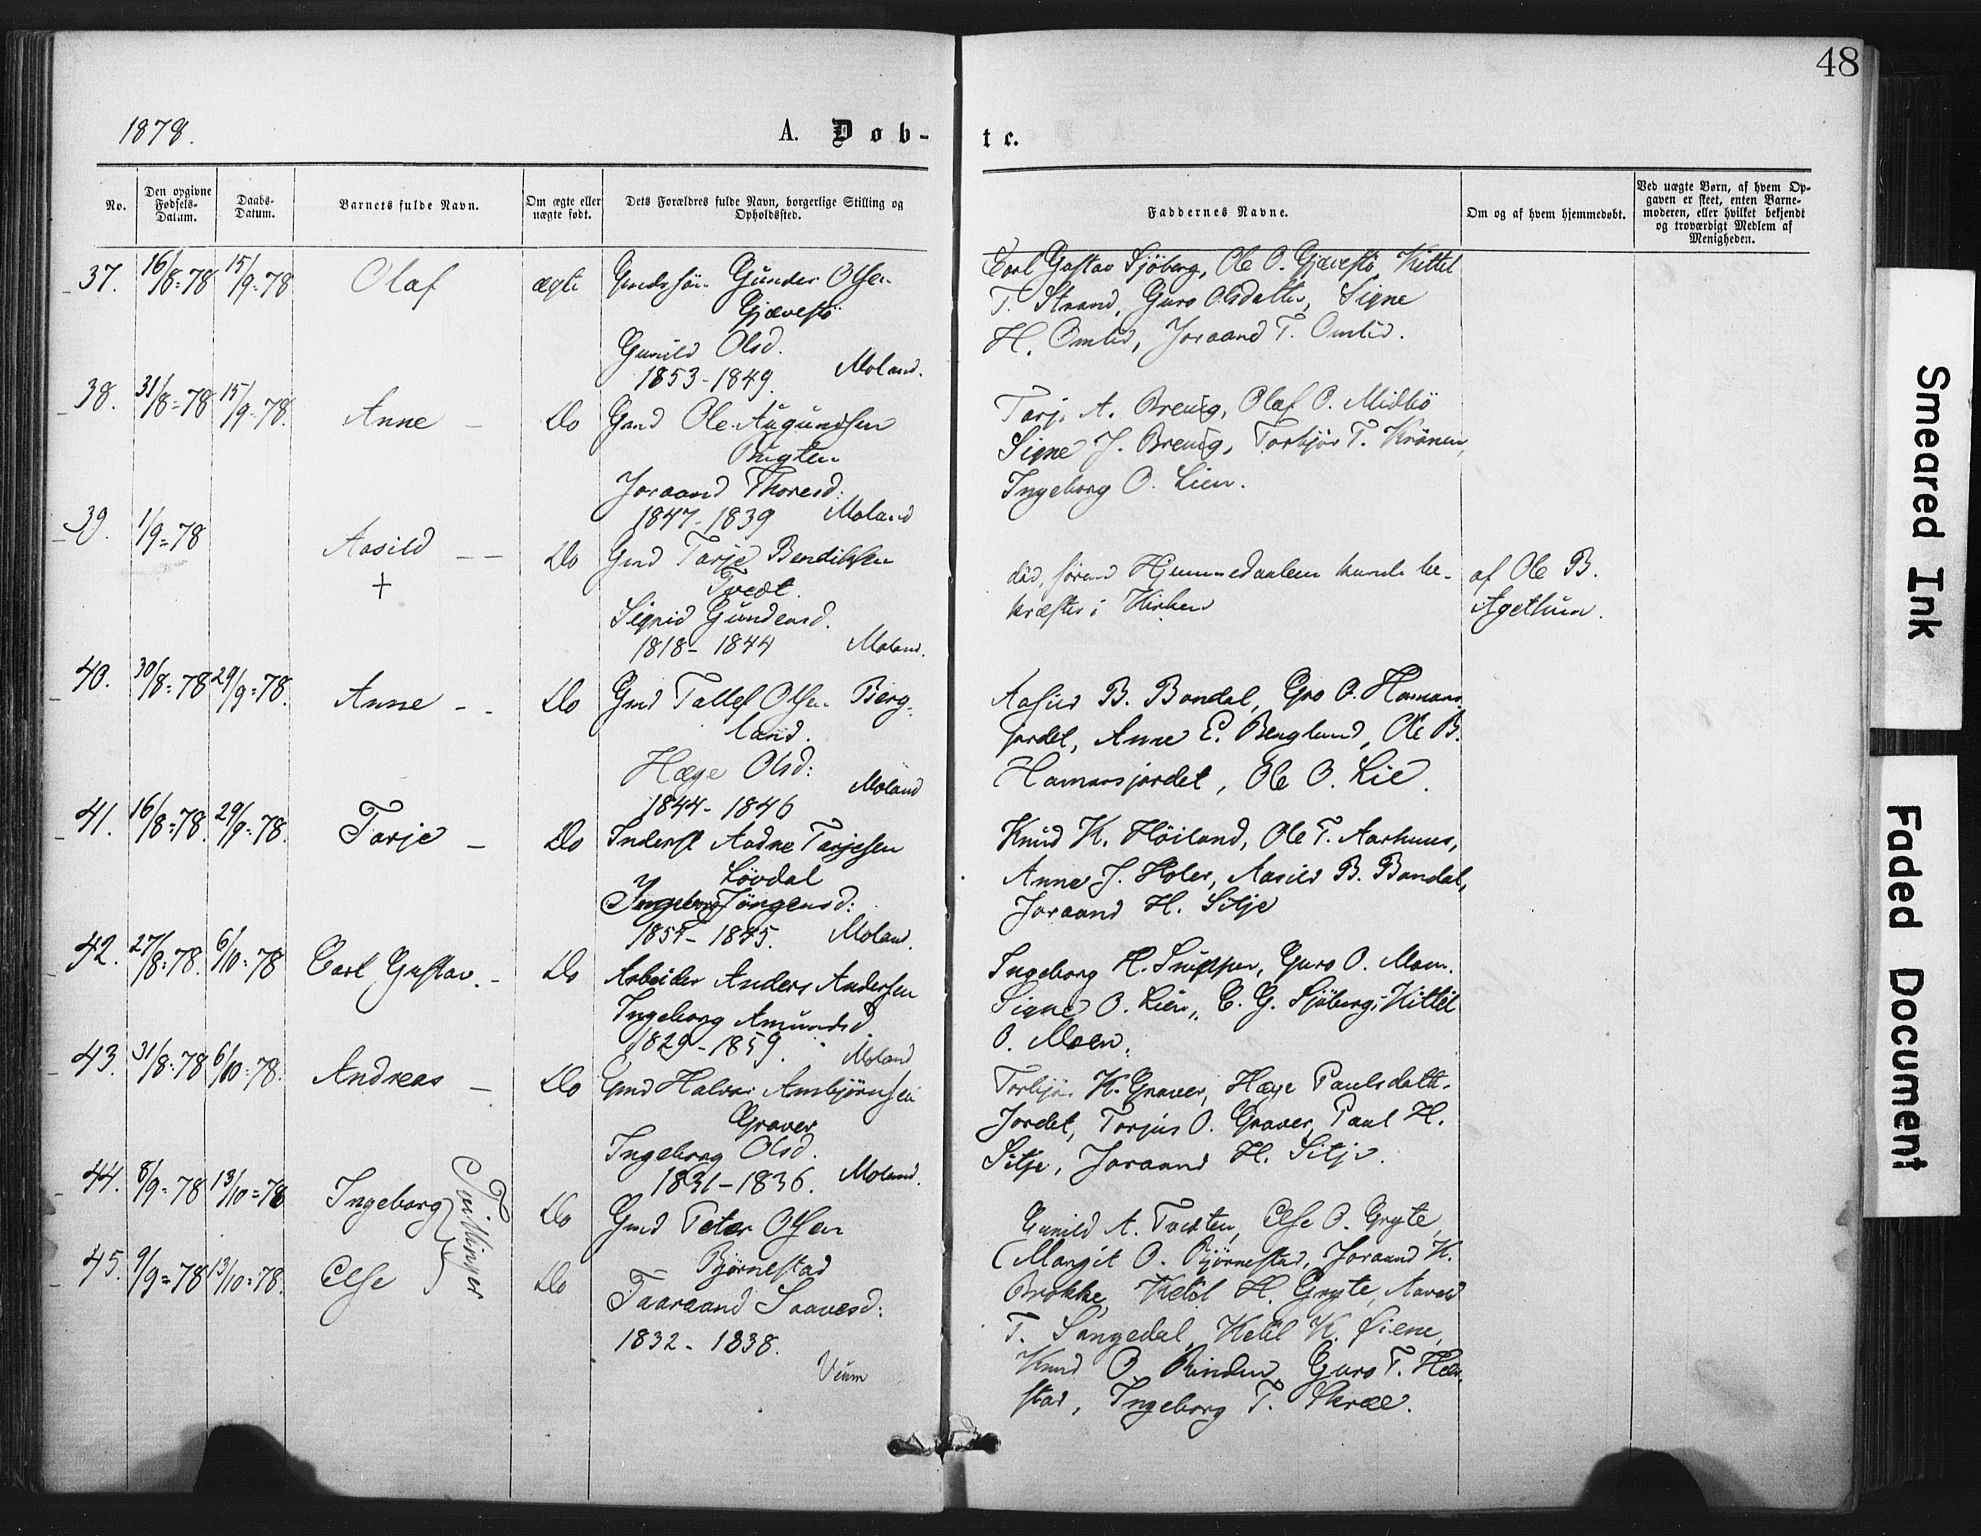 48
1878.
A. Døb-
te.
No.
Den opgivne Fødsels-Datum.
Daabs-Datum.
Barnets fulde Navn.
Om ægte eller uægte født.
Dets Forældres fulde Navn, borgerlige Stilling og Opholdssted.
Faddernes Navne.
Om og af hvem hjemmedøbt.
Ved uægte Børn, af hvem Opgaven er skeet, enten Barnemoderen, eller hvilket bekjendt og troværdigt Medlem af Menigheden.
37. 16/8=78 15/9=78 Olaf ægte
Gunder Olsen
Gjævestö
Gunild Olsd.
1853-1849. Moland.
Carl Gustav Sjöberg, Ole O. Gjævestö, Kittel
T. Strand, Guro Olsdatter, Signe
H. Omlid, Joraand T. Omlid.
38. 31/8=78 15/9=78. Anne - Do
Gmd Ole Augundsen
Bugten
Joraand Thoresd:
1847-1839 Moland
Tarje A. Breivig, Olaf O. Midbö
Signe J. Breivig, Torbjör T. Krönen,
Ingeborg O. Lien.
39. 1/9=78 Aasild - - Do
+
Gmd Tarje Bendiksen
Tvedt.
Sigrid Gundersd.
1818-1844 Moland.
död, förend Hjemmedaaben kunde be-
kræftes i Kirken
af Ole B.
Agethun.
40. 30/8=78 29/9=78. Anne - - Do
Gmd Tallef Olsen Berg-
land.
Hæge Olsd:
1844-1846 Moland
Aasild B. Bandal, Gro O. Hamars-
jordet, Anne E. Berglund, Ole B.
Hamarsjordet, Ole O. Lie.
41. 16/8=78. 29/9=78. Tarje - Do
Inderst Aadne Tarjesen
Lövdal
Ingeborg Jörgensd:
1845. Moland.
Knud K. Höiland, Ole T. Aarhuus,
Anne J. Holer, Aasild B. Bandal,
Joraand H. Sitje
42. 27/8=78. 6/10=78 Carl Gustav. - Do
Arbeider Anders Andersen
Ingeborg Amundsd.
1829-1859. Moland
Ingeborg H. Guro O. Moen.
Signe O. Lien, C. G. Sjöberg, Kittel
O. Moen.
43. 31/8=78 6/10=78. Andreas - Do
Gmd Halvor Ambjörnsen
Graver
Ingeborg Olsd.
1831-1836. Moland.
Torbjör K. Graver, Hæge Paulsdatt.
Jordet, Torjus O. Graver, Paul H.
Sitje, Joraand H. Sitje.
44. 8/9=78 13/10=78 Ingeborg Do
Tvillinger
Gmd Peter Olsen
Bjørnestad
Taaraand Saavesd:
1832-1838.
Veum
45. 9/9=78 13/10=78. Else Do
Gunild A. Tveten, Else O. Gryte,
Margit O. Bjørnestad, Joraand K.
Brokke, Ketil H. Gryte, Aavad
T. Songedal, Ketil K. Øiene,
Knud O. Rinden, Guro T. Hei-
stad, Ingeborg T. Skræe.
Smeared Ink
Faded Document